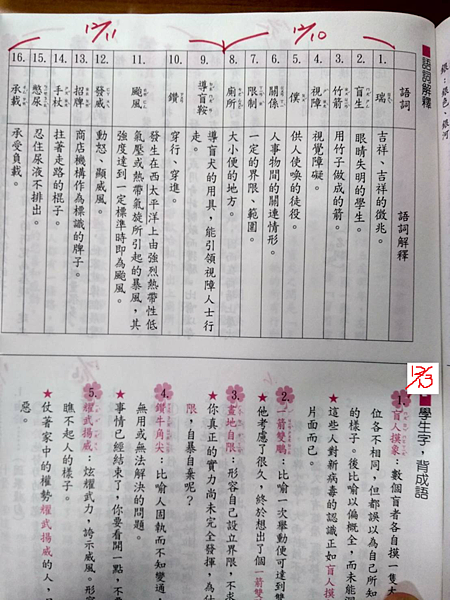 12/10
12/11
銀：銀色、銀河
語詞解釋
語詞
語詞解釋
1. 瑞
吉祥、吉祥的徵兆。
2. 盲生
眼睛失明的學生。
3. 竹箭
用竹子做成的箭。
4. 視障
視覺障礙。
5. 僕
供人使喚的徒役。
6. 關係
人事物間的關連情形。
7. 限制
一定的界限、範圍。
8. 廁所
大小便的地方。
9. 導盲鞍
導盲犬的用具，能引領視障人士行
走。
10. 鑽
穿行、穿進。
11. 颱風
發生在西太平洋上由強烈熱帶性低
氣壓或熱帶氣旋所引起的暴風，其
強度達到一定標準時即為颱風。
12. 發威
動怒、顯威風。
13. 招牌
商店機構作為標識的牌子。
14. 手杖
拄著走路的棍子。
15. 憋尿
忍住尿液不排出。
16. 承載
承受負載。
12/13
學生字，背成語
1. 盲人摸象：數個盲者各自摸一隻大
位各不相同，但都誤以為自己所知
的樣子。後比喻以偏概全，而未能
這些人對新病毒的認識正如盲人摸
片面而已。
2. 一箭雙鵰：比喻一次舉動便可達到雙
他考慮了很久，終於想出了個一箭雙
3. 畫地自限：形容自己設立界限，不求
你真正的實力尚未完全發揮，為什
限，自暴自棄呢？
4. 鑽牛角尖：比喻人固執而不知變通，
無用或無法解決的問題。
事情已經結束了，你要看開一點，不
5. 耀武揚威：炫耀武力，誇示威風。形容
瞧不起人的樣子。
仗著家中的權勢耀武揚威的人，
惡。